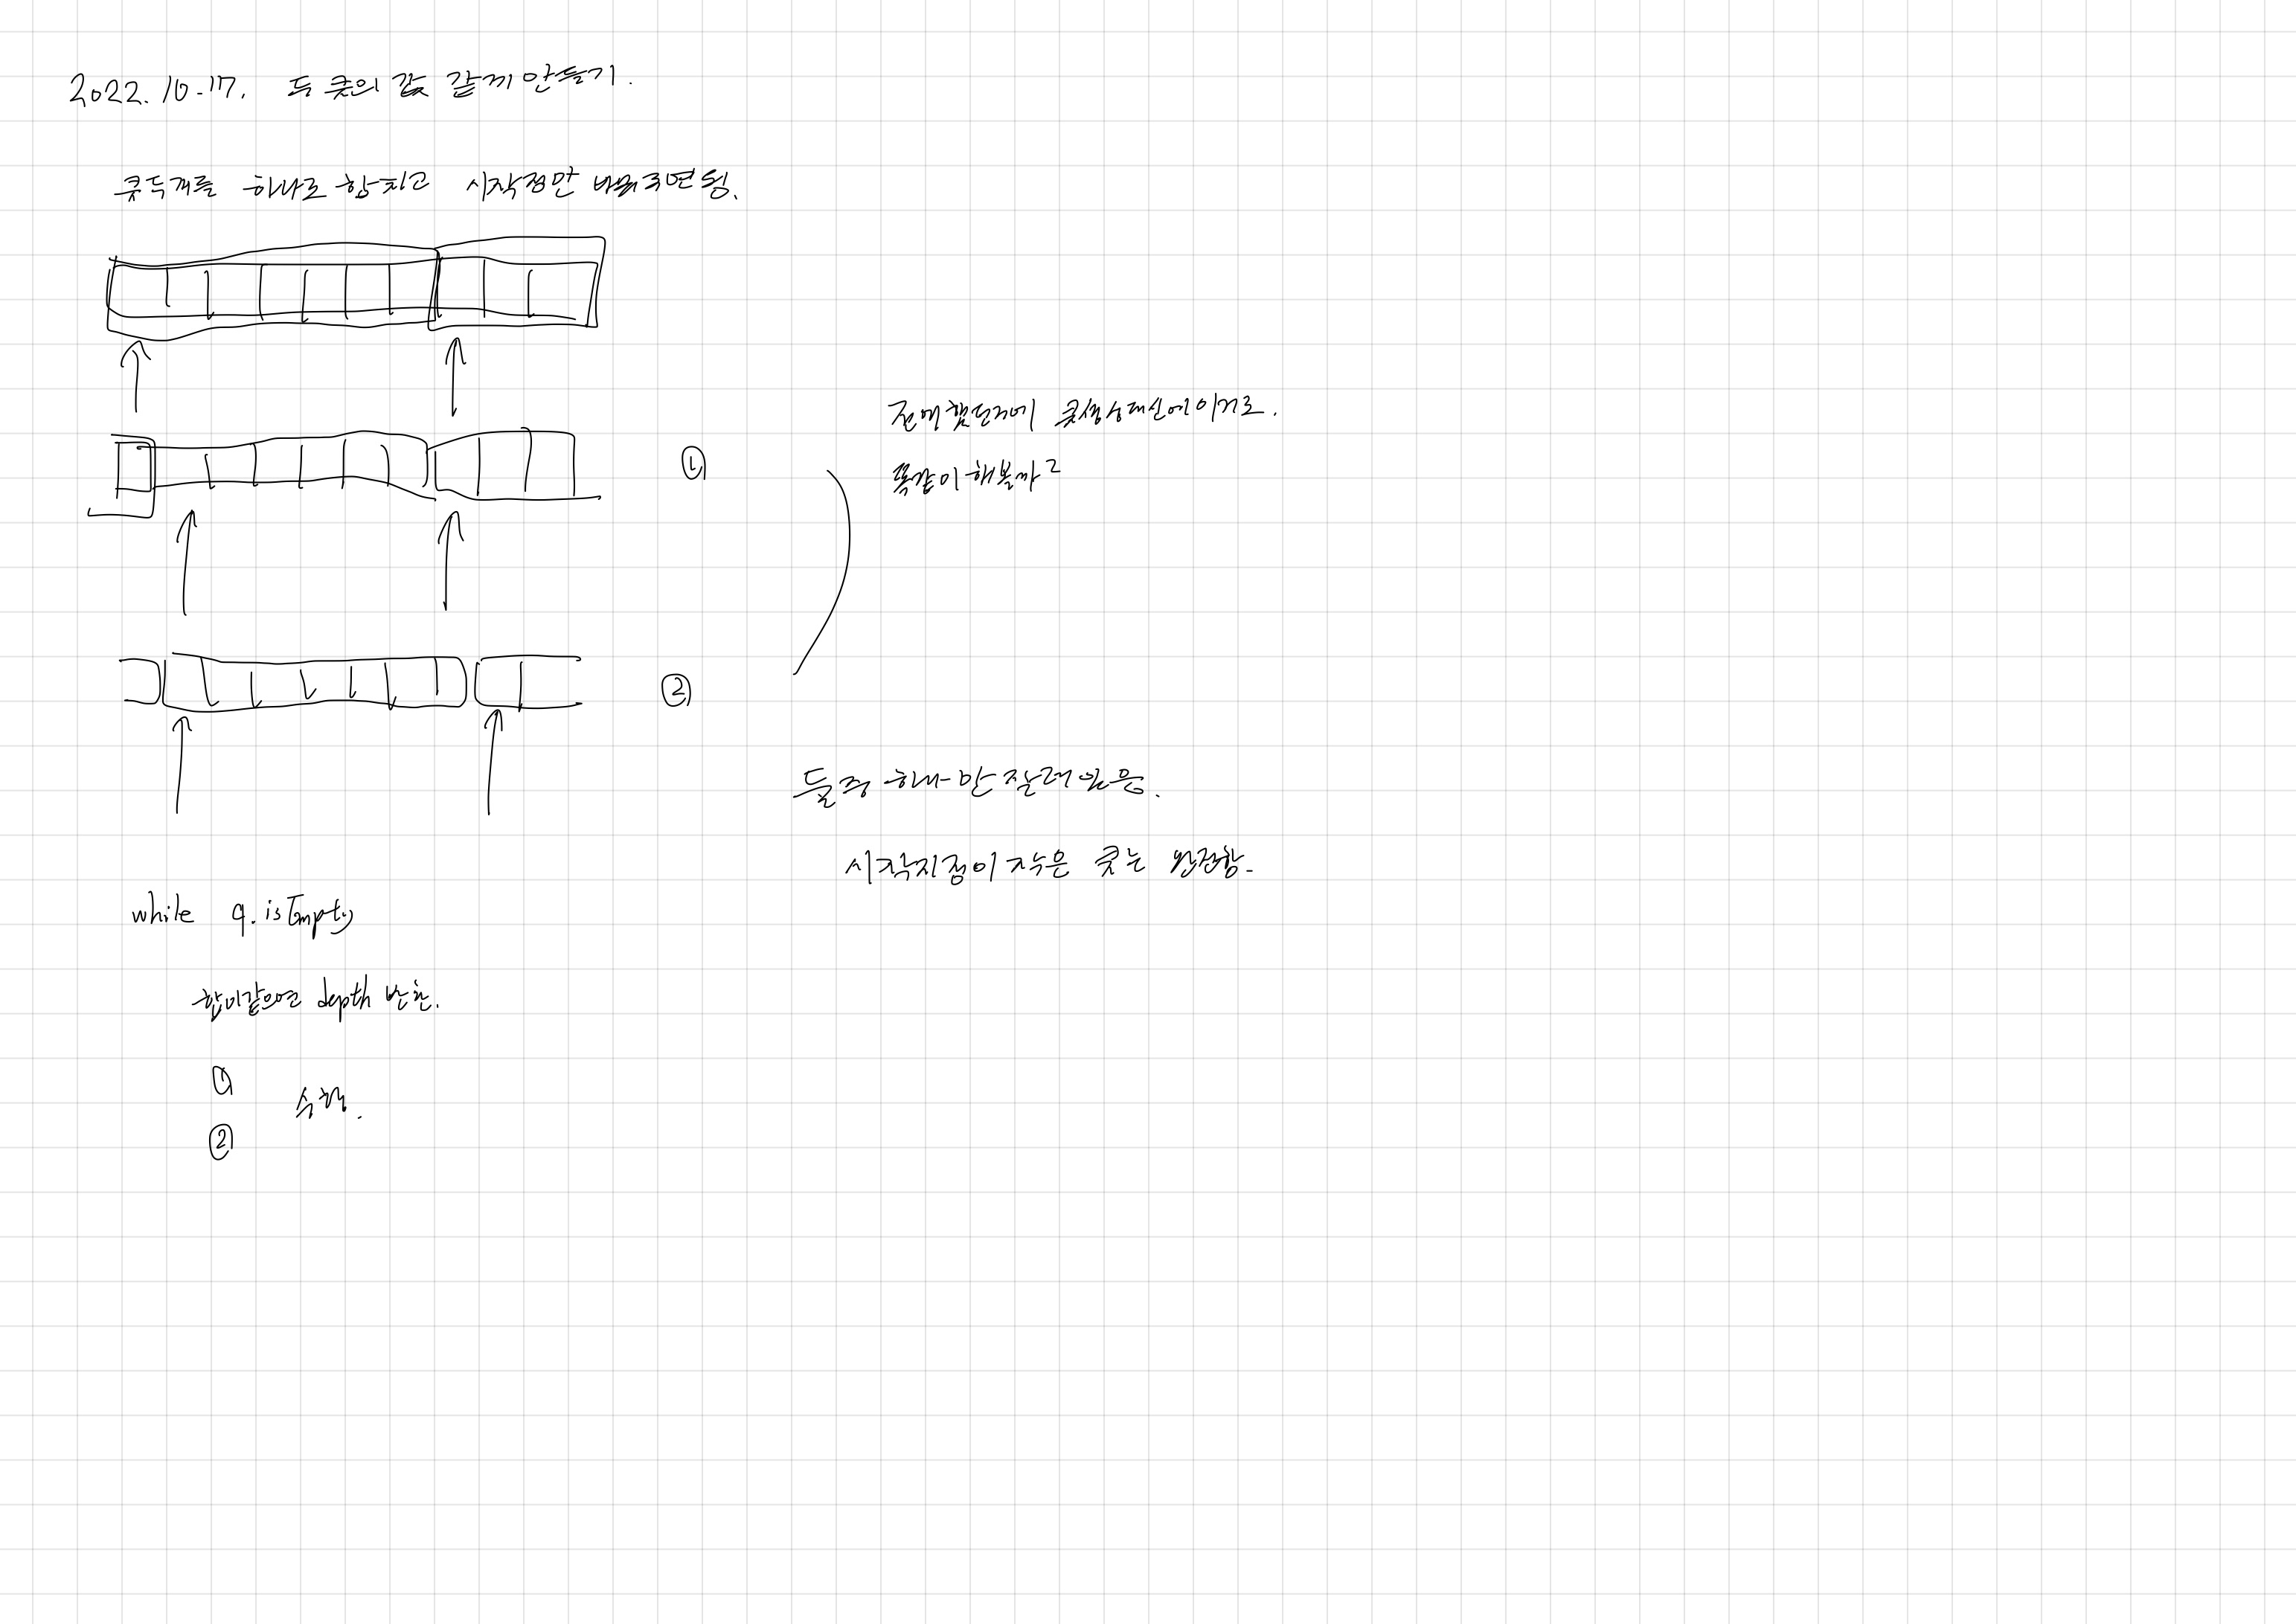 2022. 10. 17. 두 큐의 값 같게 만들기.
큐 두개를 하나로 합치고 시작점만 바꿔주면 됨.
①
전에 했던거에 큐생성대신에 이거로.
똑같이 해볼까?
②
둘중 하나만 잘려있음.
시작지점이 작은 큐는 완전함.
while q.isEmpty
합이같으면 depth 반환.
①
수행.
②